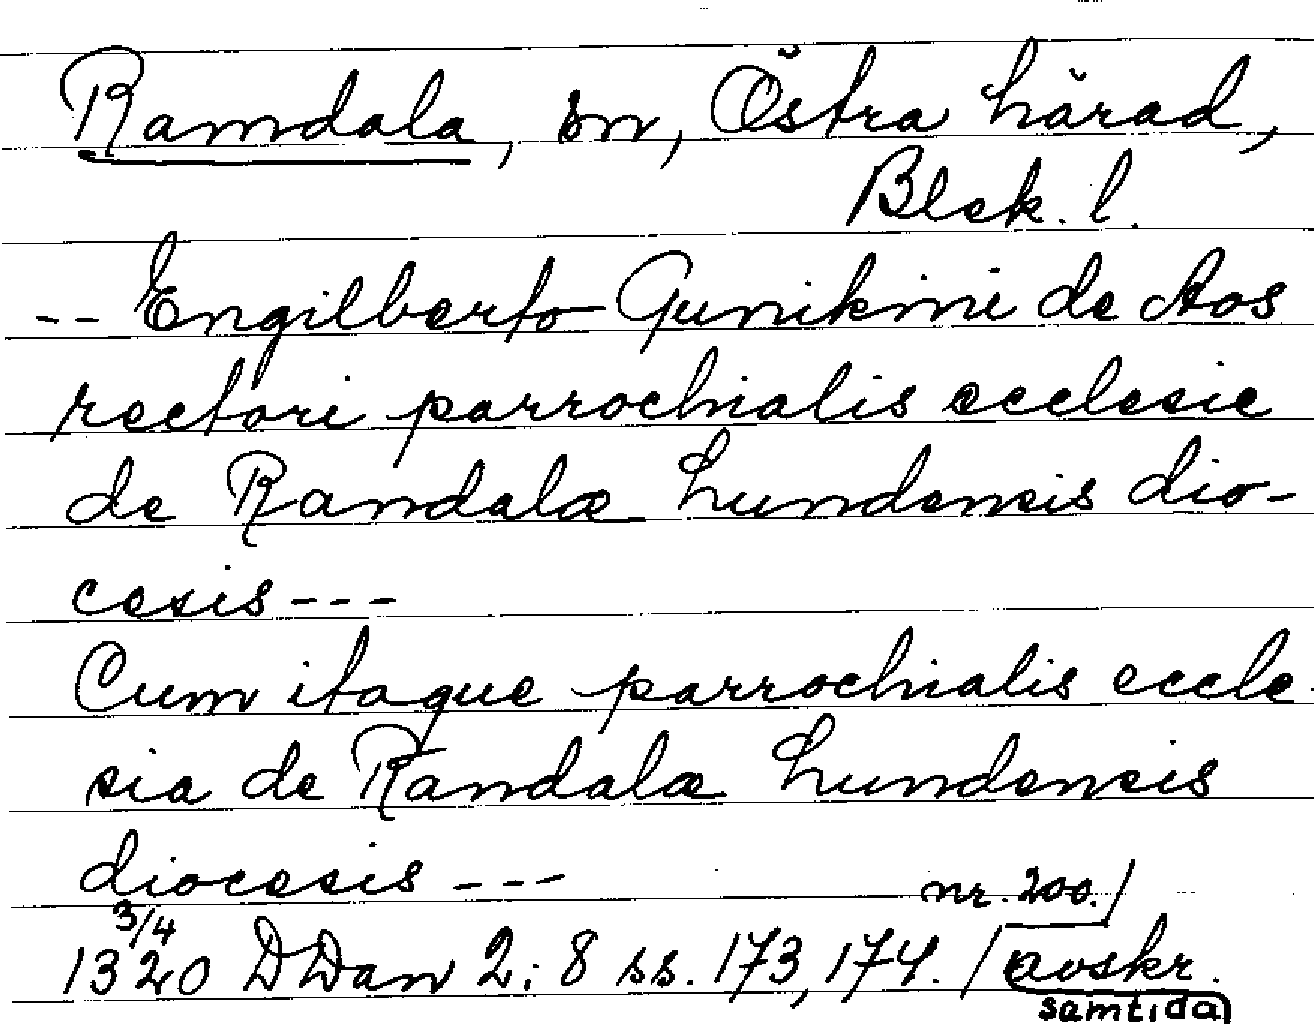 Ramdala, sn, Östra härad,
Blek. l.
-- Engilberto Gunikini de Aos
rectori parrochialis ecclesie
de Randalæ Lundensis dio-
cesis ---
Cum itaque parrochialis eccle
sia de Randalæ Lundensis
diocesis ---
nr. 200.
3/4
1320 DDan 2: 8 ss. 173, 174. / avskr.
samtida